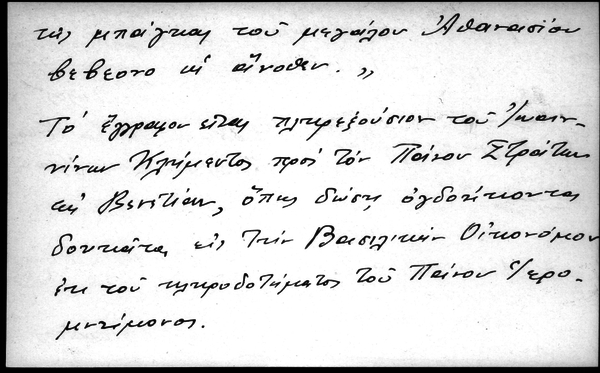 τῆς μπάγκας τοῦ μεγάλου Ἀθανασίου
βεβεονο κὶ ἄνοθεν. „
Τὸ ἔγγραφον εἶναι πληρεξούσιον τοῦ Ἰωαν-
νίνων Κλήμεντος πρὸς τὸν Πάνον Στράτην
εἰς Βενετίαν, ὅπως δώσῃ ὀγδοήκοντα
δουκάτα εἰς τὴν Βασιλικὴν Οἰκονόμου
ἐκ τοῦ κληροδοτήματος τοῦ Πάνου Ἱερο-
μνήμονος.